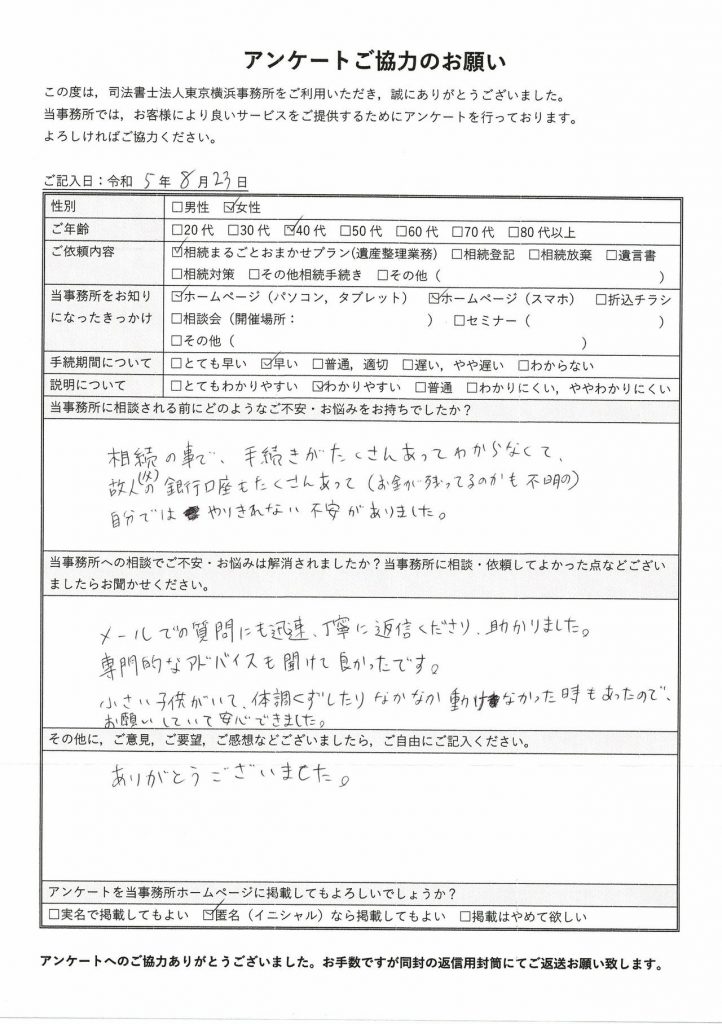 アンケートご協力のお願い
この度は，司法書士法人東京横浜事務所をご利用いただき，誠にありがとうございました。
当事務所では，お客様により良いサービスをご提供するためにアンケートを行っております。
よろしければご協力ください。
ご記入日：令和 5 年 8 月 23 日
性別 □男性 ☑女性
ご年齢 □20 代 □30 代 ☑40 代 □50 代 □60 代 □70 代 □80 代以上
ご依頼内容 ☑相続まるごとおまかせプラン(遺産整理業務) □相続登記 □相続放棄 □遺言書
□相続対策 □その他相続手続き □その他（ ）
当事務所をお知り ☑ホームページ（パソコン，タブレット） ☑ホームページ（スマホ） □折込チラシ
になったきっかけ □相談会（開催場所： ） □セミナー（ ）
□その他（ ）
手続期間について □とても早い ☑早い □普通，適切 □遅い，やや遅い □わからない
説明について □とてもわかりやすい ☑わかりやすい □普通 □わかりにくい，ややわかりにくい
当事務所に相談される前にどのようなご不安・お悩みをお持ちでしたか？
相続の事で、手続きがたくさんあってわからなくて、
故人(父)の銀行口座もたくさんあって（お金が残ってるのかも不明の）
自分では やりきれない不安がありました。
当事務所への相談でご不安・お悩みは解消されましたか？当事務所に相談・依頼してよかった点などござい
ましたらお聞かせください。
メールでの質問にも迅速、丁寧に返信くださり、助かりました。
専門的なアドバイスも聞けて良かったです。
小さい子供がいて、体調くずしたりなかなか動けなかった時もあったので、
お願いしていて安心できました。
その他に，ご意見，ご要望，ご感想などございましたら，ご自由にご記入ください。
ありがとうございました。
アンケートを当事務所ホームページに掲載してもよろしいでしょうか？
□実名で掲載してもよい ☑匿名（イニシャル）なら掲載してもよい □掲載はやめて欲しい
アンケートへのご協力ありがとうございました。お手数ですが同封の返信用封筒にてご返送お願い致します。